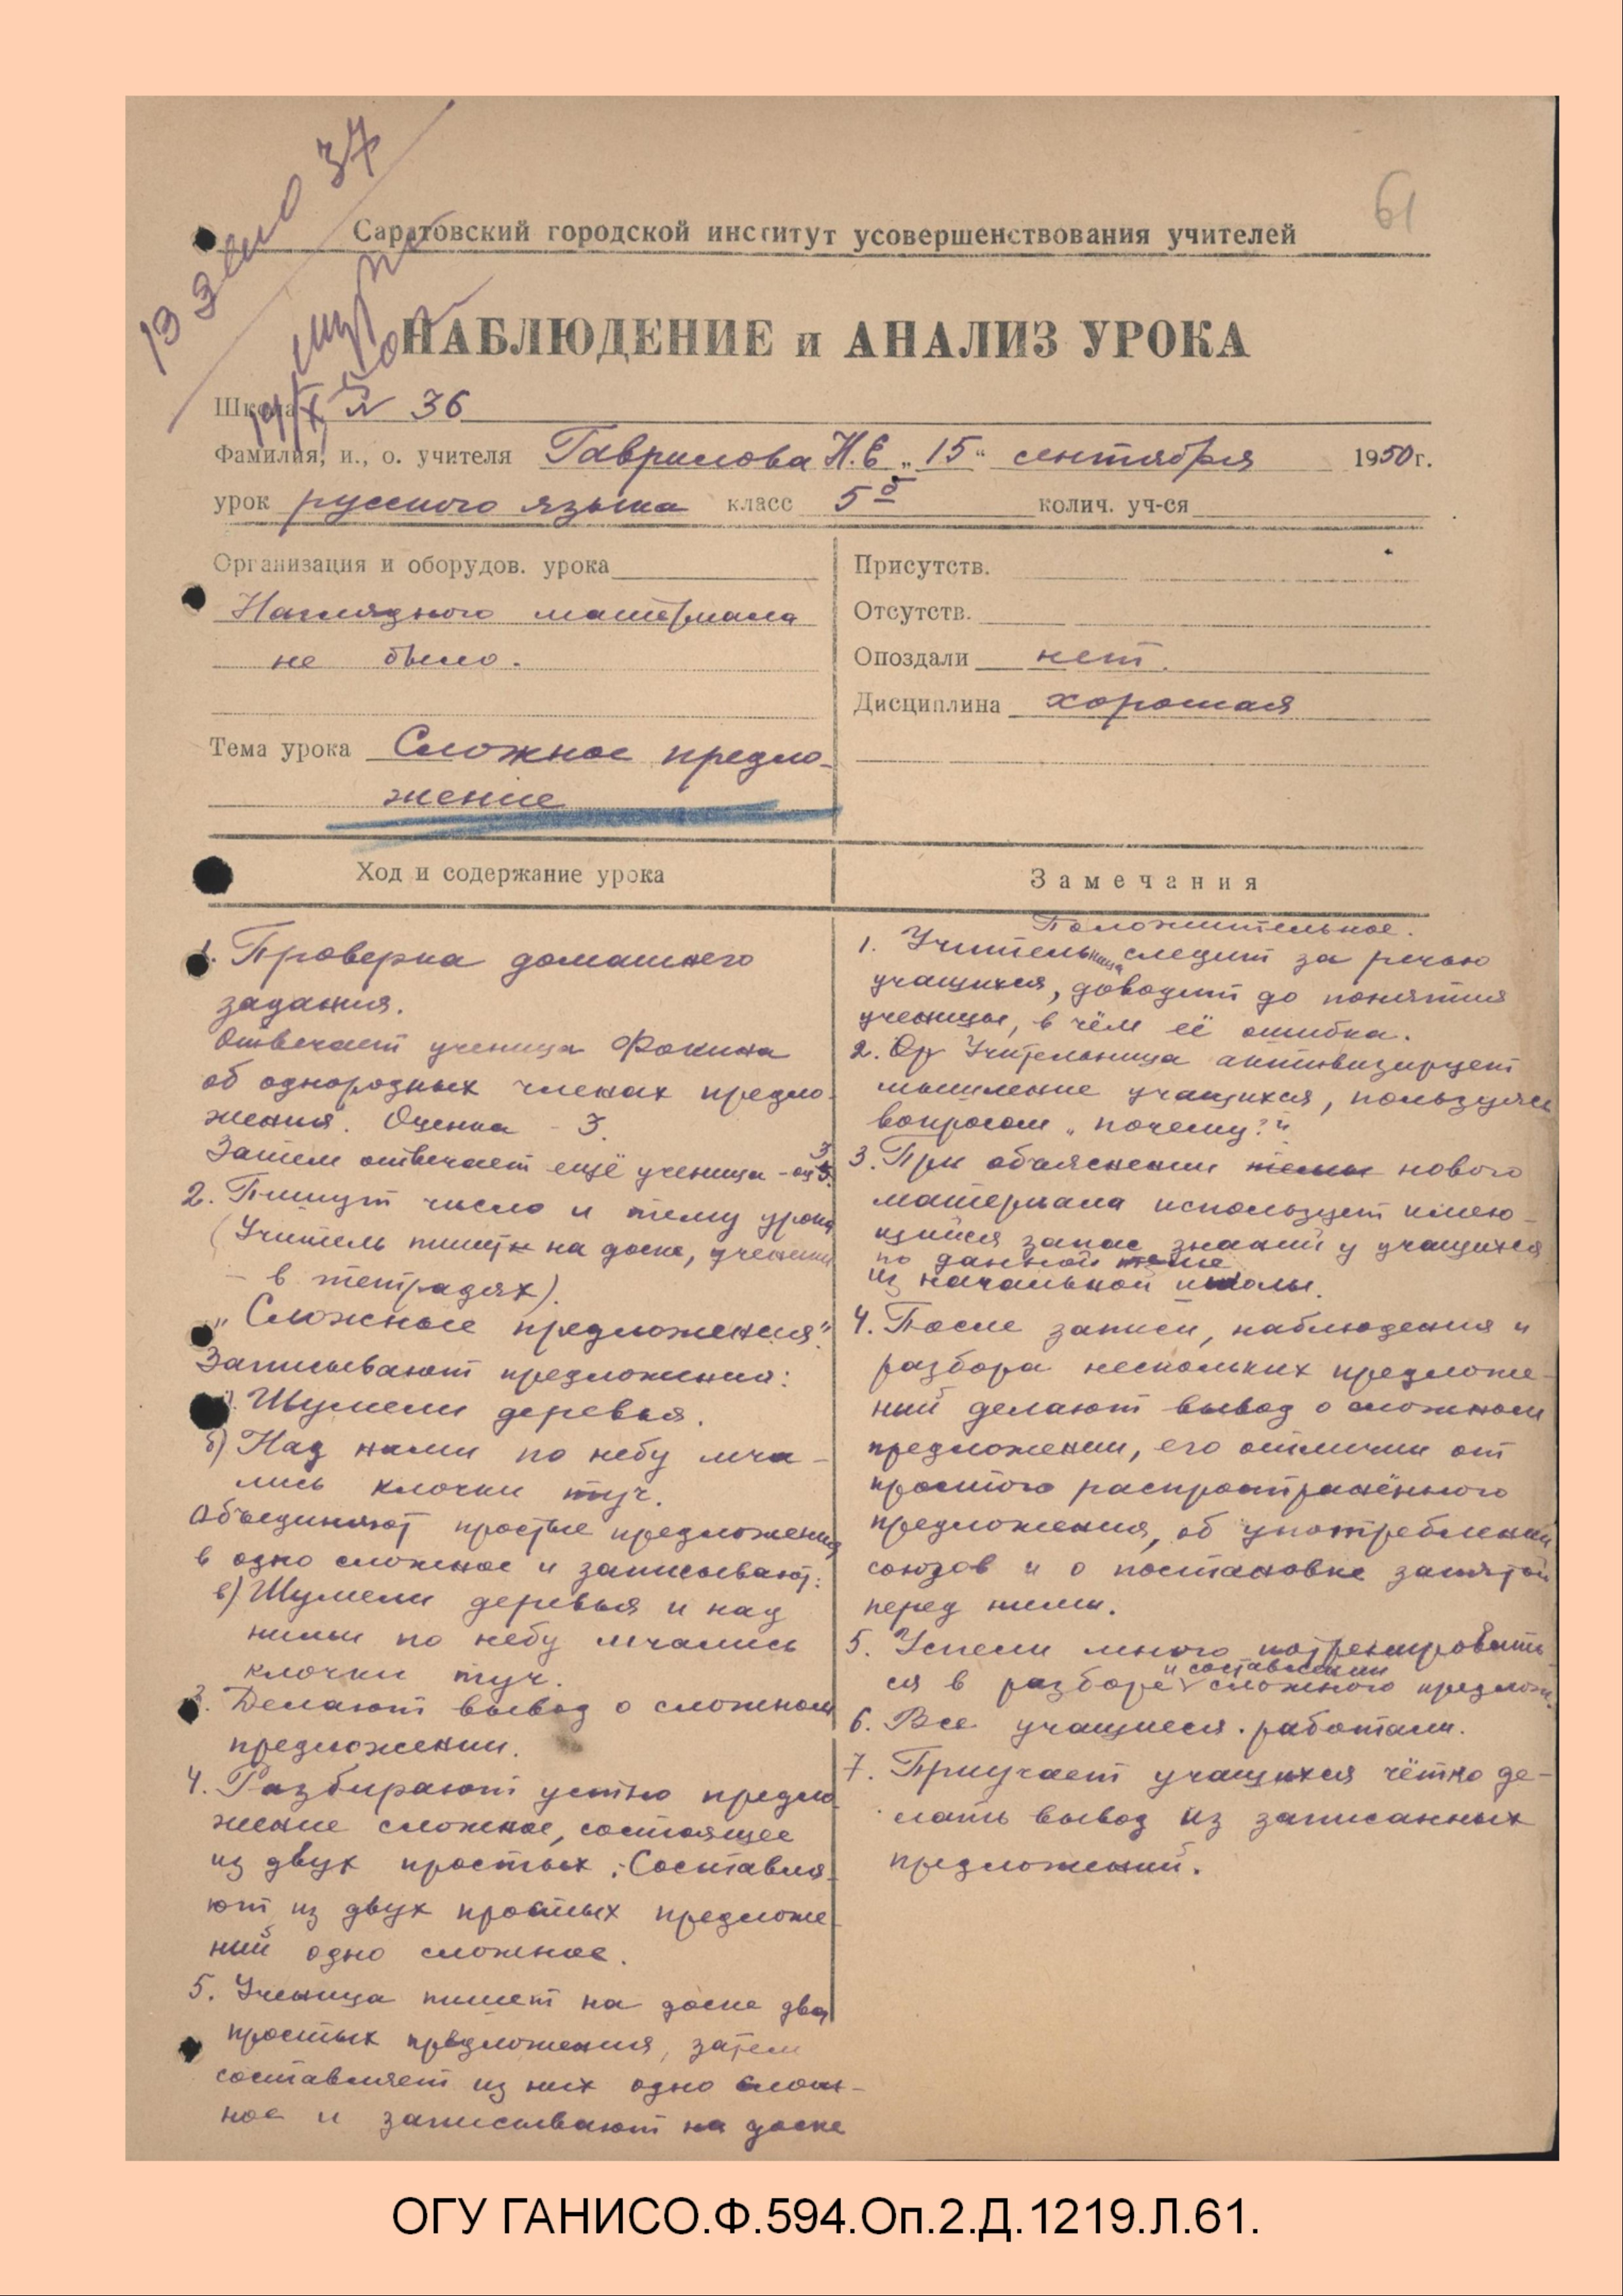 13 37
61
Саратовский городской институт усовершенствования учителей
НАБЛЮДЕНИЕ и АНАЛИЗ УРОКА
Школа № 36
Фамилия, и., о. учителя Гаврилова Н.Е „15“ сентября 1950 г.
урок русского языка класс 5 б колич. уч-ся
Организация и оборудов. урока
Наглядного материала
не было.
Тема урока Сложное предло-
жение
Присутств.
Отсутств.
Опоздали нет.
Дисциплина хорошая
Ход и содержание урока
1. Проверка домашнего
задания.
Отвечает ученица Фокина
об однородных членах предло-
жения. Оценка - 3.
Затем отвечает ещё ученица - оц 3.
2. Пишут число и тему урока
(Учитель пишет на доске, ученики
- в тетрадях).
„Сложные предложения“.
Записывают предложения:
а). Шумели деревья.
б) Над ними по небу мча-
лись клочки туч.
Объединяют простые предложения
в одно сложное и записывают:
в) Шумели деревья и над
ними по небу мчались
клочки туч.
3. Делают вывод о сложном
предложении.
4. Разбирают устно предло-
жение сложное, состоящее
из двух простых. Составля-
ют из двух простых предложе-
ний одно сложное.
5. Ученица пишет на доске два
простых предложения, затем
составляет из них одно слож-
ное и записывают на доске
Замечания
Положительное.
1. Учительница следит за речью
учащихся, доводит до понятия
ученицы, в чём её ошибка.
2. Учительница активизирует
мышление учащихся, пользуясь
вопросом „почему?“
3. При объяснении темы нового
материала использует имею-
щийся запас знаний у учащихся
по данной теме
из начальной школы.
4. После записи, наблюдения и
разбора нескольких предложе-
ний делают вывод о сложном
предложении, его отличии от
простого распространённого
предложения, об употреблении
союзов и о постановке запятой
перед ними.
5. Успели много потренировать-
ся в разборе и составлении сложного предлож.
6. Все учащиеся работали.
7. Приучает учащихся чётко де-
лать вывод из записанных
предложений.
ОГУ ГАНИСО.Ф.594.Оп.2.Д.1219.Л.61.